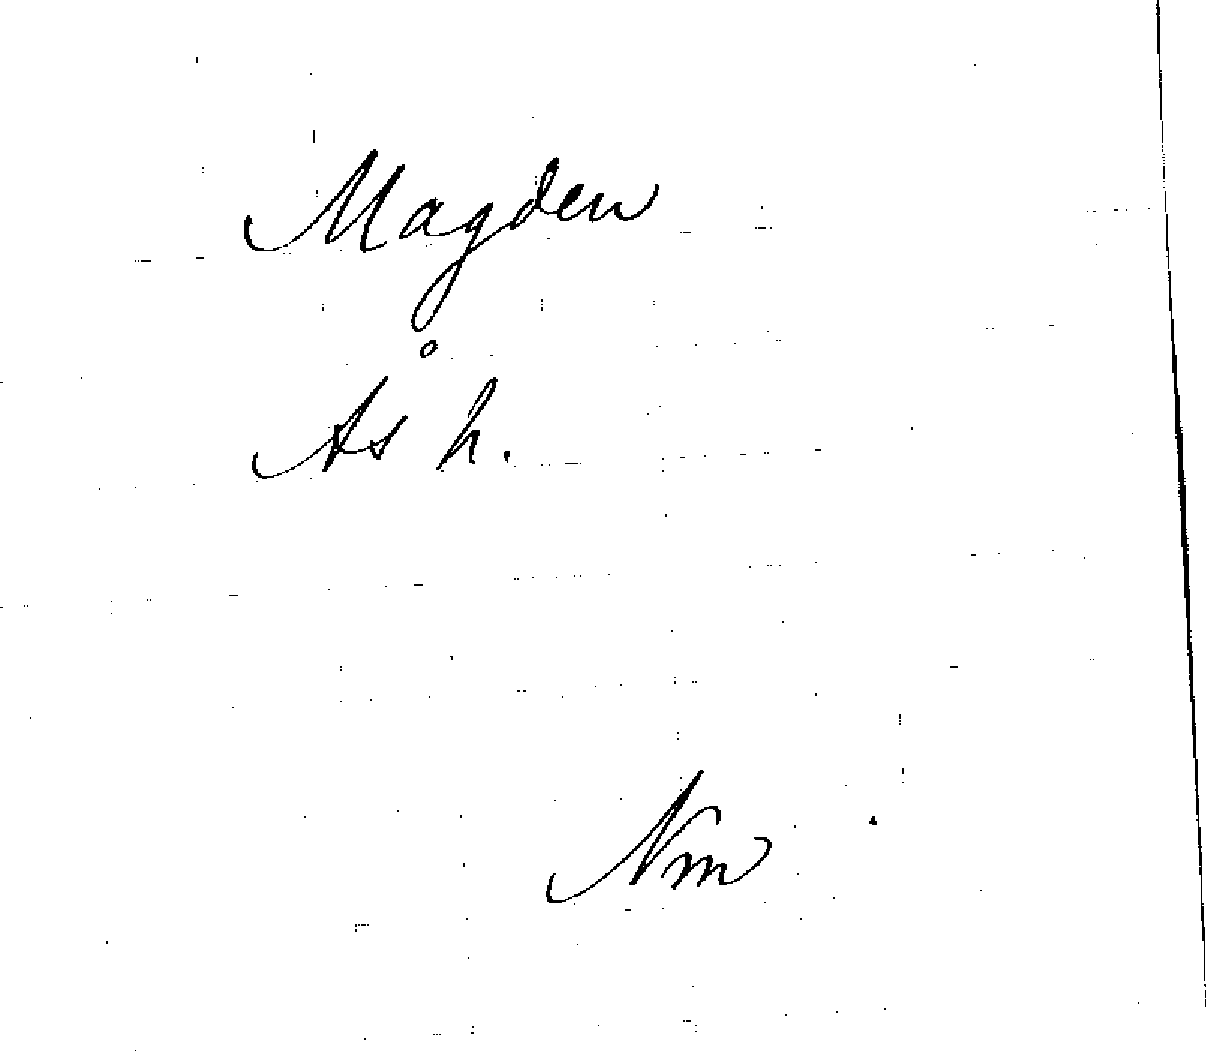 Magden
Ås h.
Nm